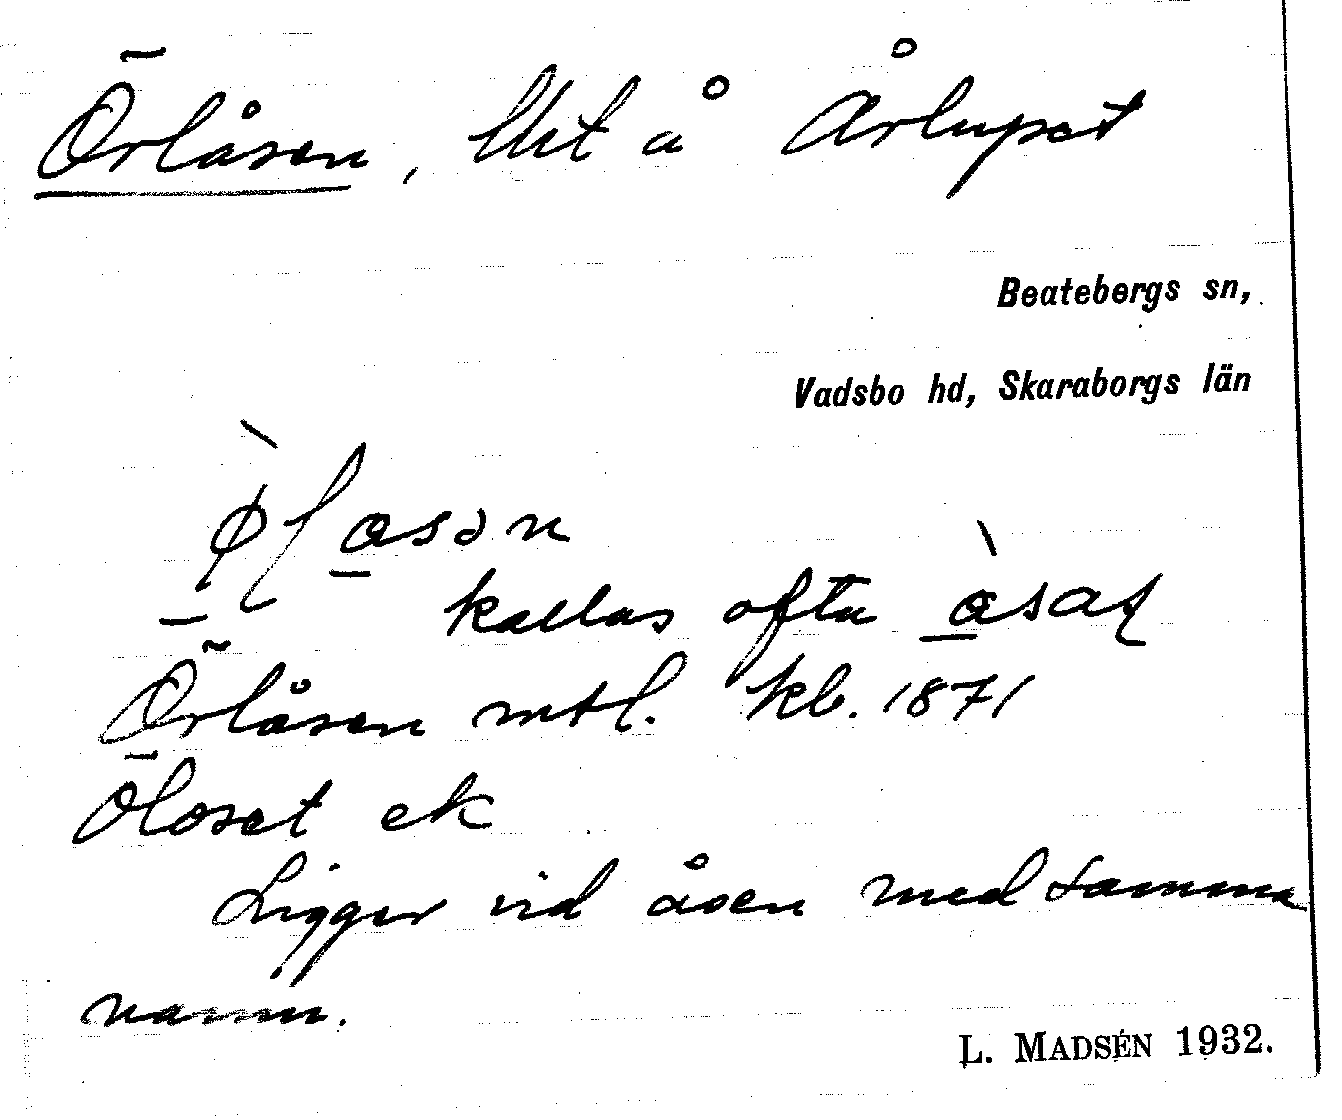 Örlåsen, lht å Årlupet
Beatebergs sn,
Vadsbo hd, Skaraborgs län
kallas ofta
Örlåsen mtl. kb. 1871
Ölaset ek
Ligger vid åsen med samma
namn.
L. MADSÉN 1932.